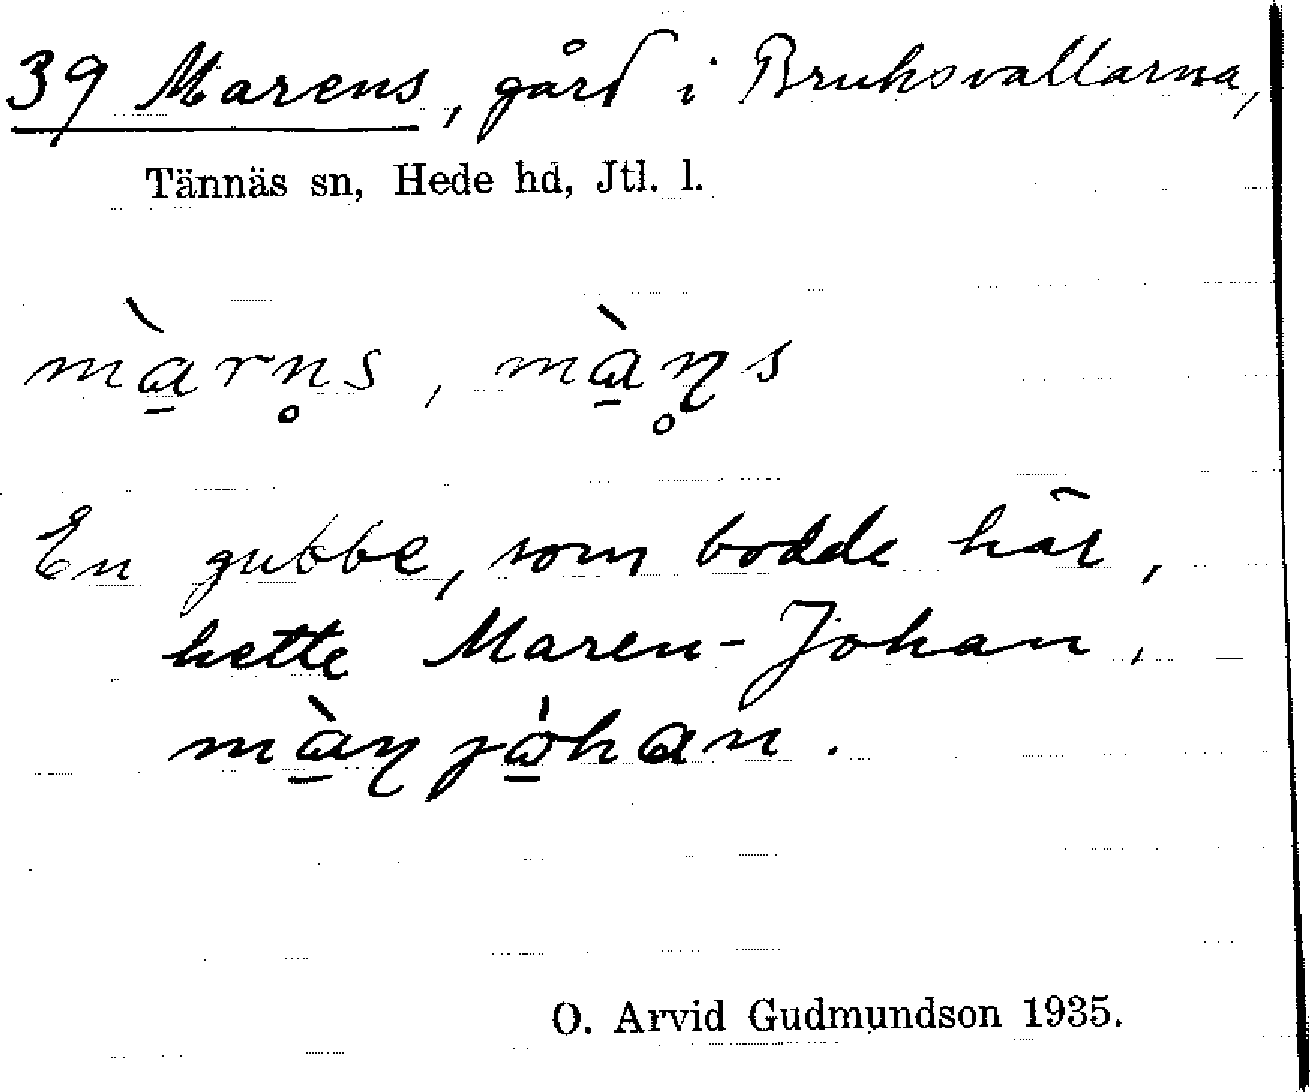 39 Marens, gård i Bruksvallarna,
Tännäs sn, Hede hd, Jtl. l.
mà̱rn̥s, mà̱ɳ̥s
En gubbe, som bodde här,
hette Maren-Johan,
mà̱ɳjò̱han.
O. Arvid Gudmundson 1935.